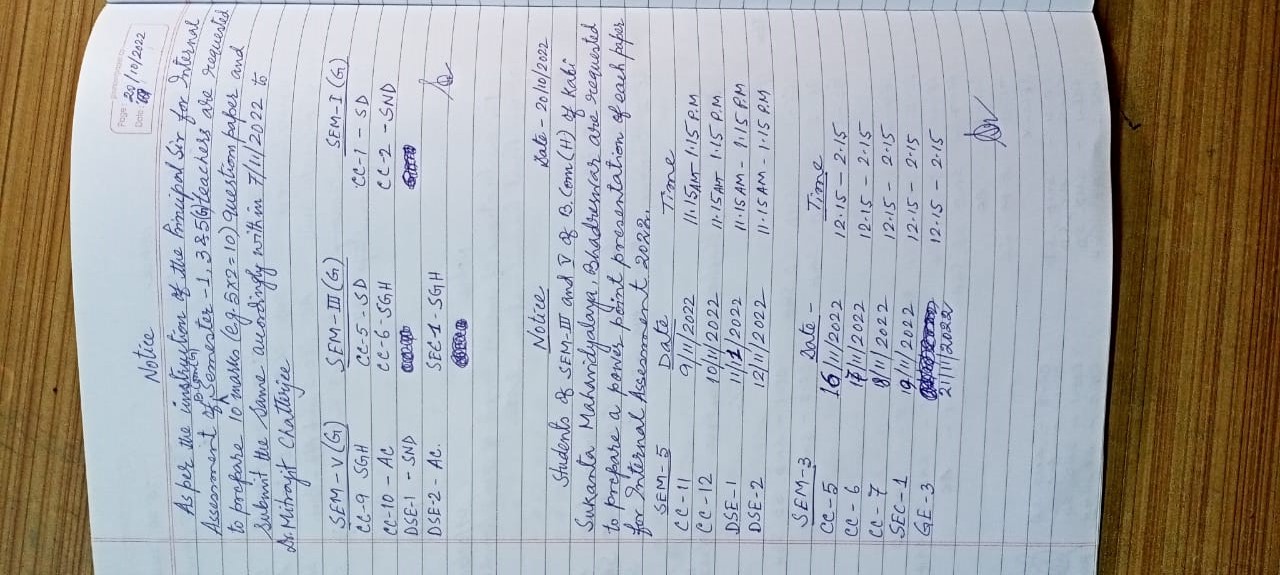 Page:
Date: 20/10/2022
Notice
As per the instruction of the Principal Sir for Internal
Assessment of B.Com(H) Semester-1, 3 & 5(G) teachers are requested
to prepare 10 marks (eg. 5x2=10) question paper and
submit the same accordingly within 7/11/2022 to
Dr. Mitrajit Chatterjee
SEM-V(G) SEM-III(G) SEM-I(G)
CC-9-SGH CC-5-SD CC-1-SD
CC-10-AC CC-6-SGH CC-2-SND
DSE-1-SND
DSE-2-AC. SEC1-SGH
Notice Date-20/10/2022
Students of SEM-III and V of B.Com(H) of Kabi
Sukanta Mahavidyalaya, Bhadreswar are requested
to prepare a power point presentation of each paper
for Internal Assessment 2022.
SEM-5 Date Time
CC-11 9/11/2022 11.15AM-1.15P.M
CC-12 10/11/2022 11.15AM 1.15P.M
DSE-1 11/11/2022 11.15AM-1.15P.M
DSE-2 12/11/2022 11.15AM-1.15P.M
SEM-3 Date- Time
CC-5 16/11/2022 12.15-2.15
CC-6 17/11/2022 12.15-2.15
CC-7 18/11/2022 12.15-2.15
SEC-1 19/11/2022 12.15-2.15
GE-3 21/11/2022 12.15-2.15